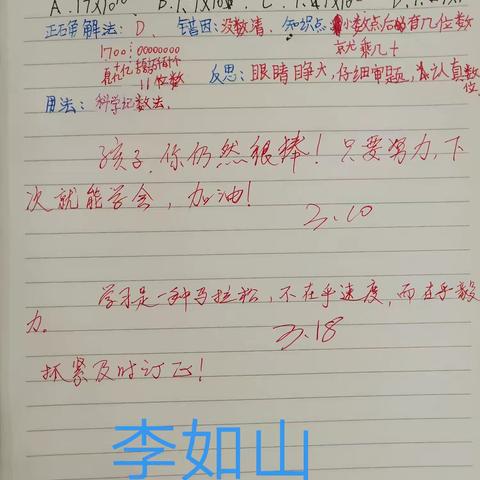 正确解法：D、错因：没数清、知识点：小数点后的有几位数
就乘几十
1700⋮00000000
11位数
反思：眼睛睁大，仔细审题，认真数位。
用法：科学记数法、
孩子，你仍然很棒！只要努力，下
次就能学会，加油！
3.10
学习是一种马拉松，不在乎速度，而在乎毅
力。
3.18
抓紧及时订正！
李如山